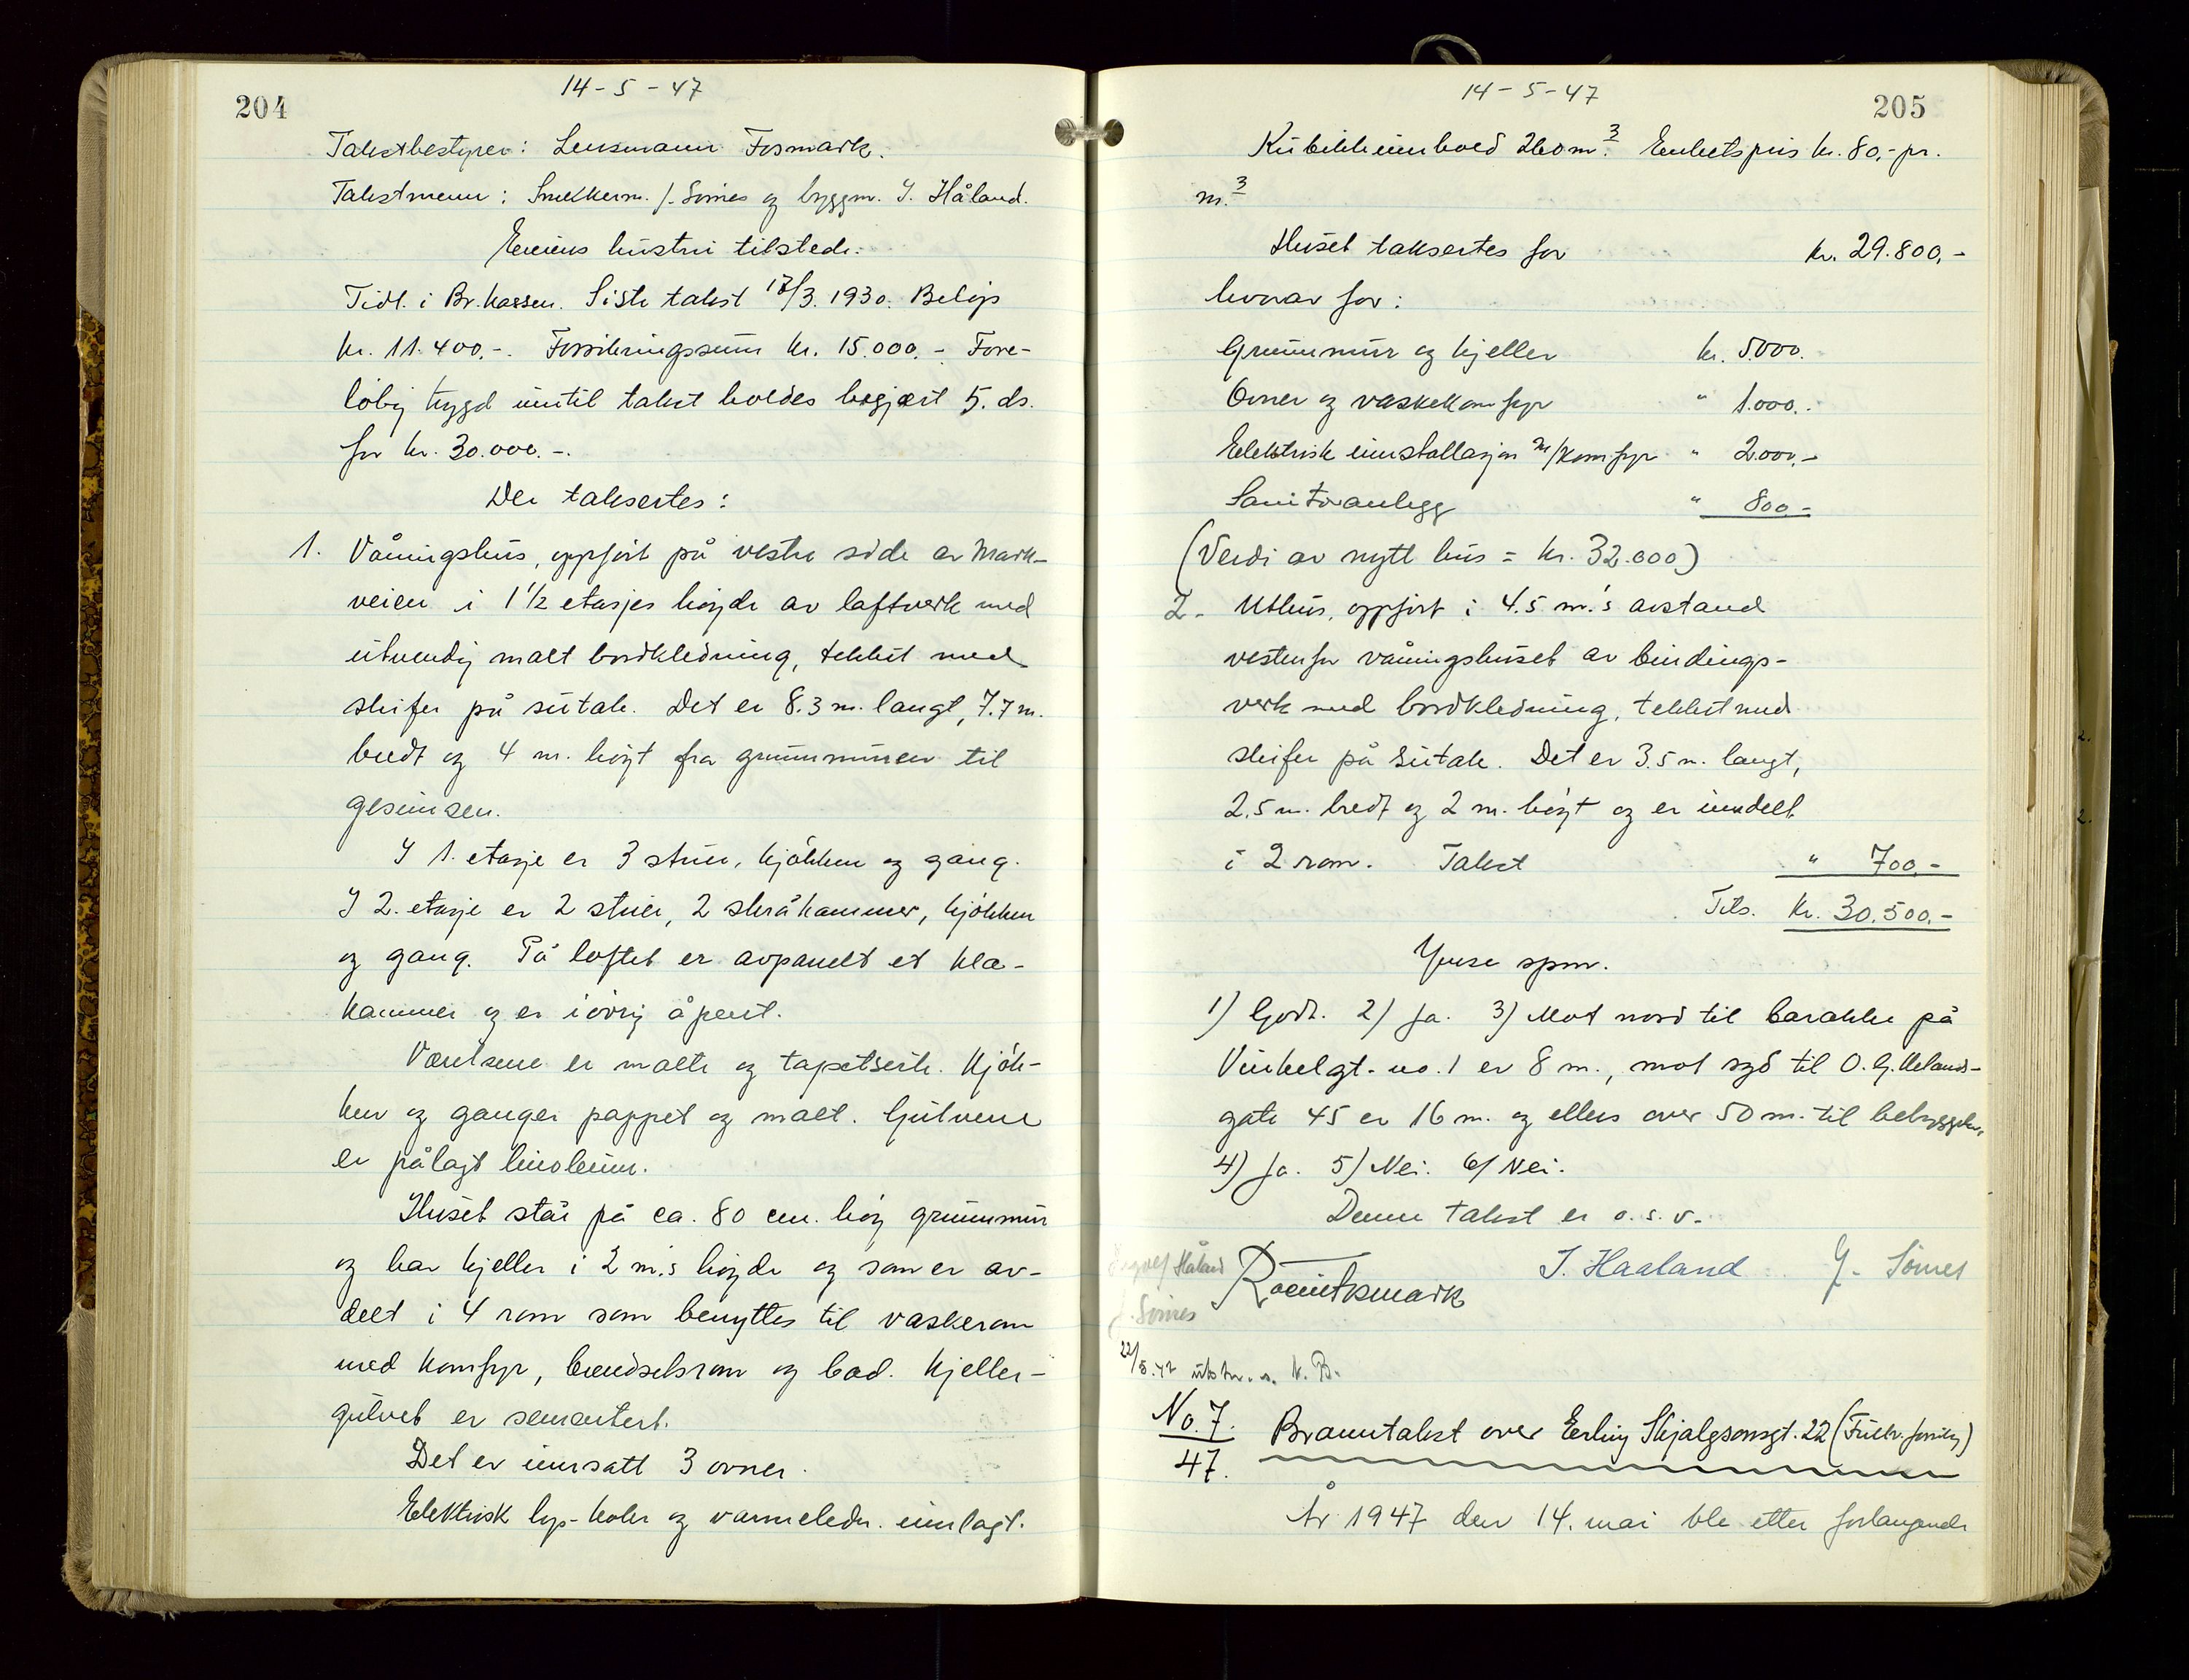 204
14-5-47
Takstbestyrer: Lensmann Fosmark.
Takstmenn: Snekkerm. J. Sømes og byggm. I. Håland.
Eierens hustru tilstede.
Tidl. i Br.kassen. Siste takst 17/3. 1930. Beløp
kr. 11.400.-. Forsikringssum kr. 15.000.- Fore-
løbig trygd inntil takst holdes begjært 5. ds.
for kr. 30.000.-.
Der taksertes:
1. Våningshus, oppført på vestre side av Mark-
veien i 1 1/2 etasjes høyde av laftverk med
utvendig malt bordkledning, tekket med
skifer på sutak. Det er 8.3 m. langt, 7.7 m.
bredt og 4 m. høyt fra grunnmuren til
gesimsen.
I 1. etasje er 3 stuer, kjøkken og gang.
I 2. etasje er 2 stuer, 2 skråkammer, kjøkken
og gang. På loftet er avpanelt et kle-
kammer og er iøvrig åpent.
Værelsene er malte og tapetserte. Kjøk-
ken og ganger pappet og malt. Gulvene
er pålagt linoleum.
Huset står på ca. 80 cm. høy grunnmur
og har kjeller i 2 m.s høyde og som er av-
delt i 4 rom som benyttes til vaskerom
med komfyr, brendselsrom og bad. Kjeller-
gulvet er sementert.
Det er innsatt 3 ovner.
Elektrisk lys- koke og varmeledn. innlagt.
14-5-47
205
Kubikkinnhold 260 m.3 Enhetspris kr. 80,- pr.
m.3
Huset taksertes for kr. 29.800,-
hvorav for:
Grunnmur og kjeller kr. 5.000.
Ovner og vaskekomfyr " 1.000.-
Elektrisk innstallasjon m/komfyr " 2.000,-
Sanitæranlegg " 800-
(Verdi av nytt hus = kr. 32.000)
2. Uthus, oppført i 4.5 m.'s avstand
vestenfor våningshuset av bindings-
verk med bordkledning, tekket med
skifer på sutak. Det er 3.5 m. langt,
2.5 m. bredt og 2 m. høyt og er inndelt
i 2 rom. Takst " 700,-
Tils. kr. 30.500.-
Ynse spm.
1) Godt. 2) Ja. 3) Mot nord til barakke på
Vinkelgt. no. 1 er 8 m., mot syd til O. G. Melands-
gate 45 er 16 m. og ellers over 50 m. til bebyggelse,
4) Ja. 5) Nei. 6) Nei.
Denne takst er o.s.v.
Håland J. Haaland J. Sømes
J. Sømes
22/5.47 utskr. s. N. B.
No. 7.
47. Branntakst over Erling Skjalgsonsgt. 22
År 1947 den 14. mai ble etter forlangende